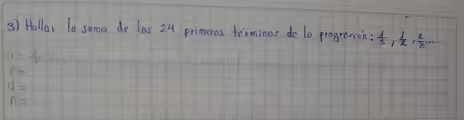 3) Hallar la suma de las 24 primeros términos de la progresión: 1/3, 1/2, 2/3....
d =
n =